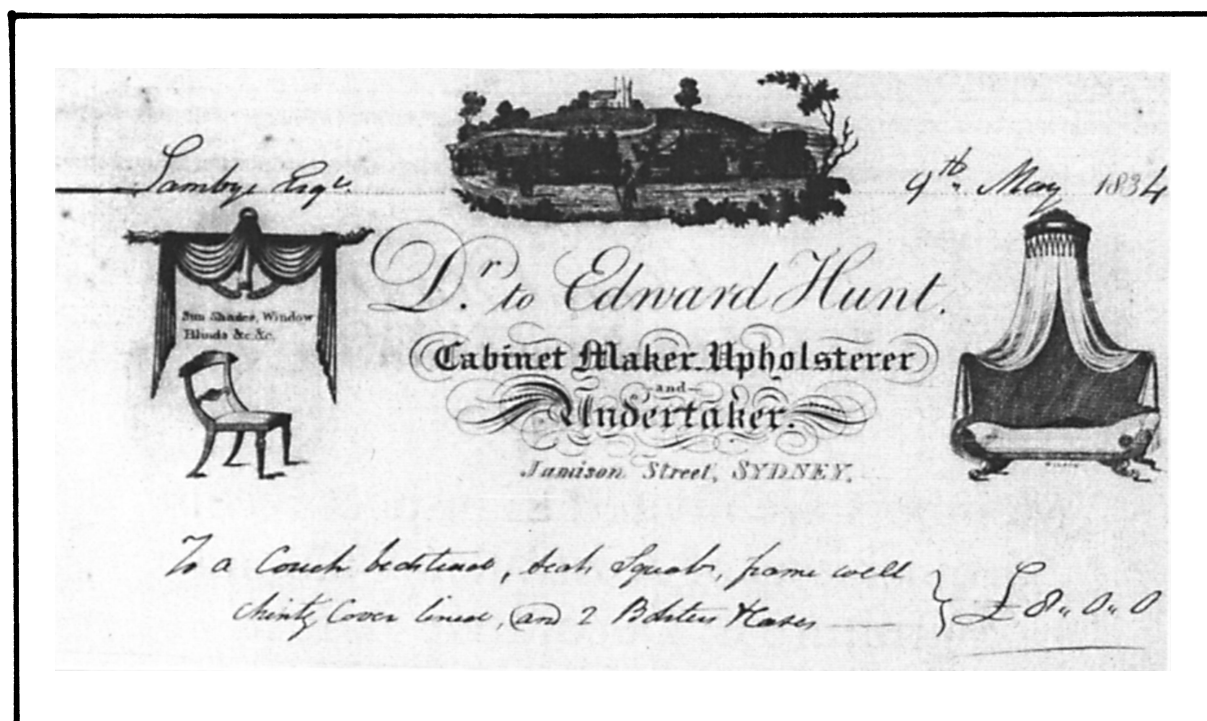 Esqr. 9th May 1834
Sun Shades, Window
Blinds &c. &c.
Dr. to Edward Hunt.
Cabinet Maker. Upholsterer
and
Undertaker.
Jamison Street, SYDNEY.
To a Couch bedstead, Squab, frame well
chintz Cover lined, and 2 Bolsters & Cases £8,,0,,0